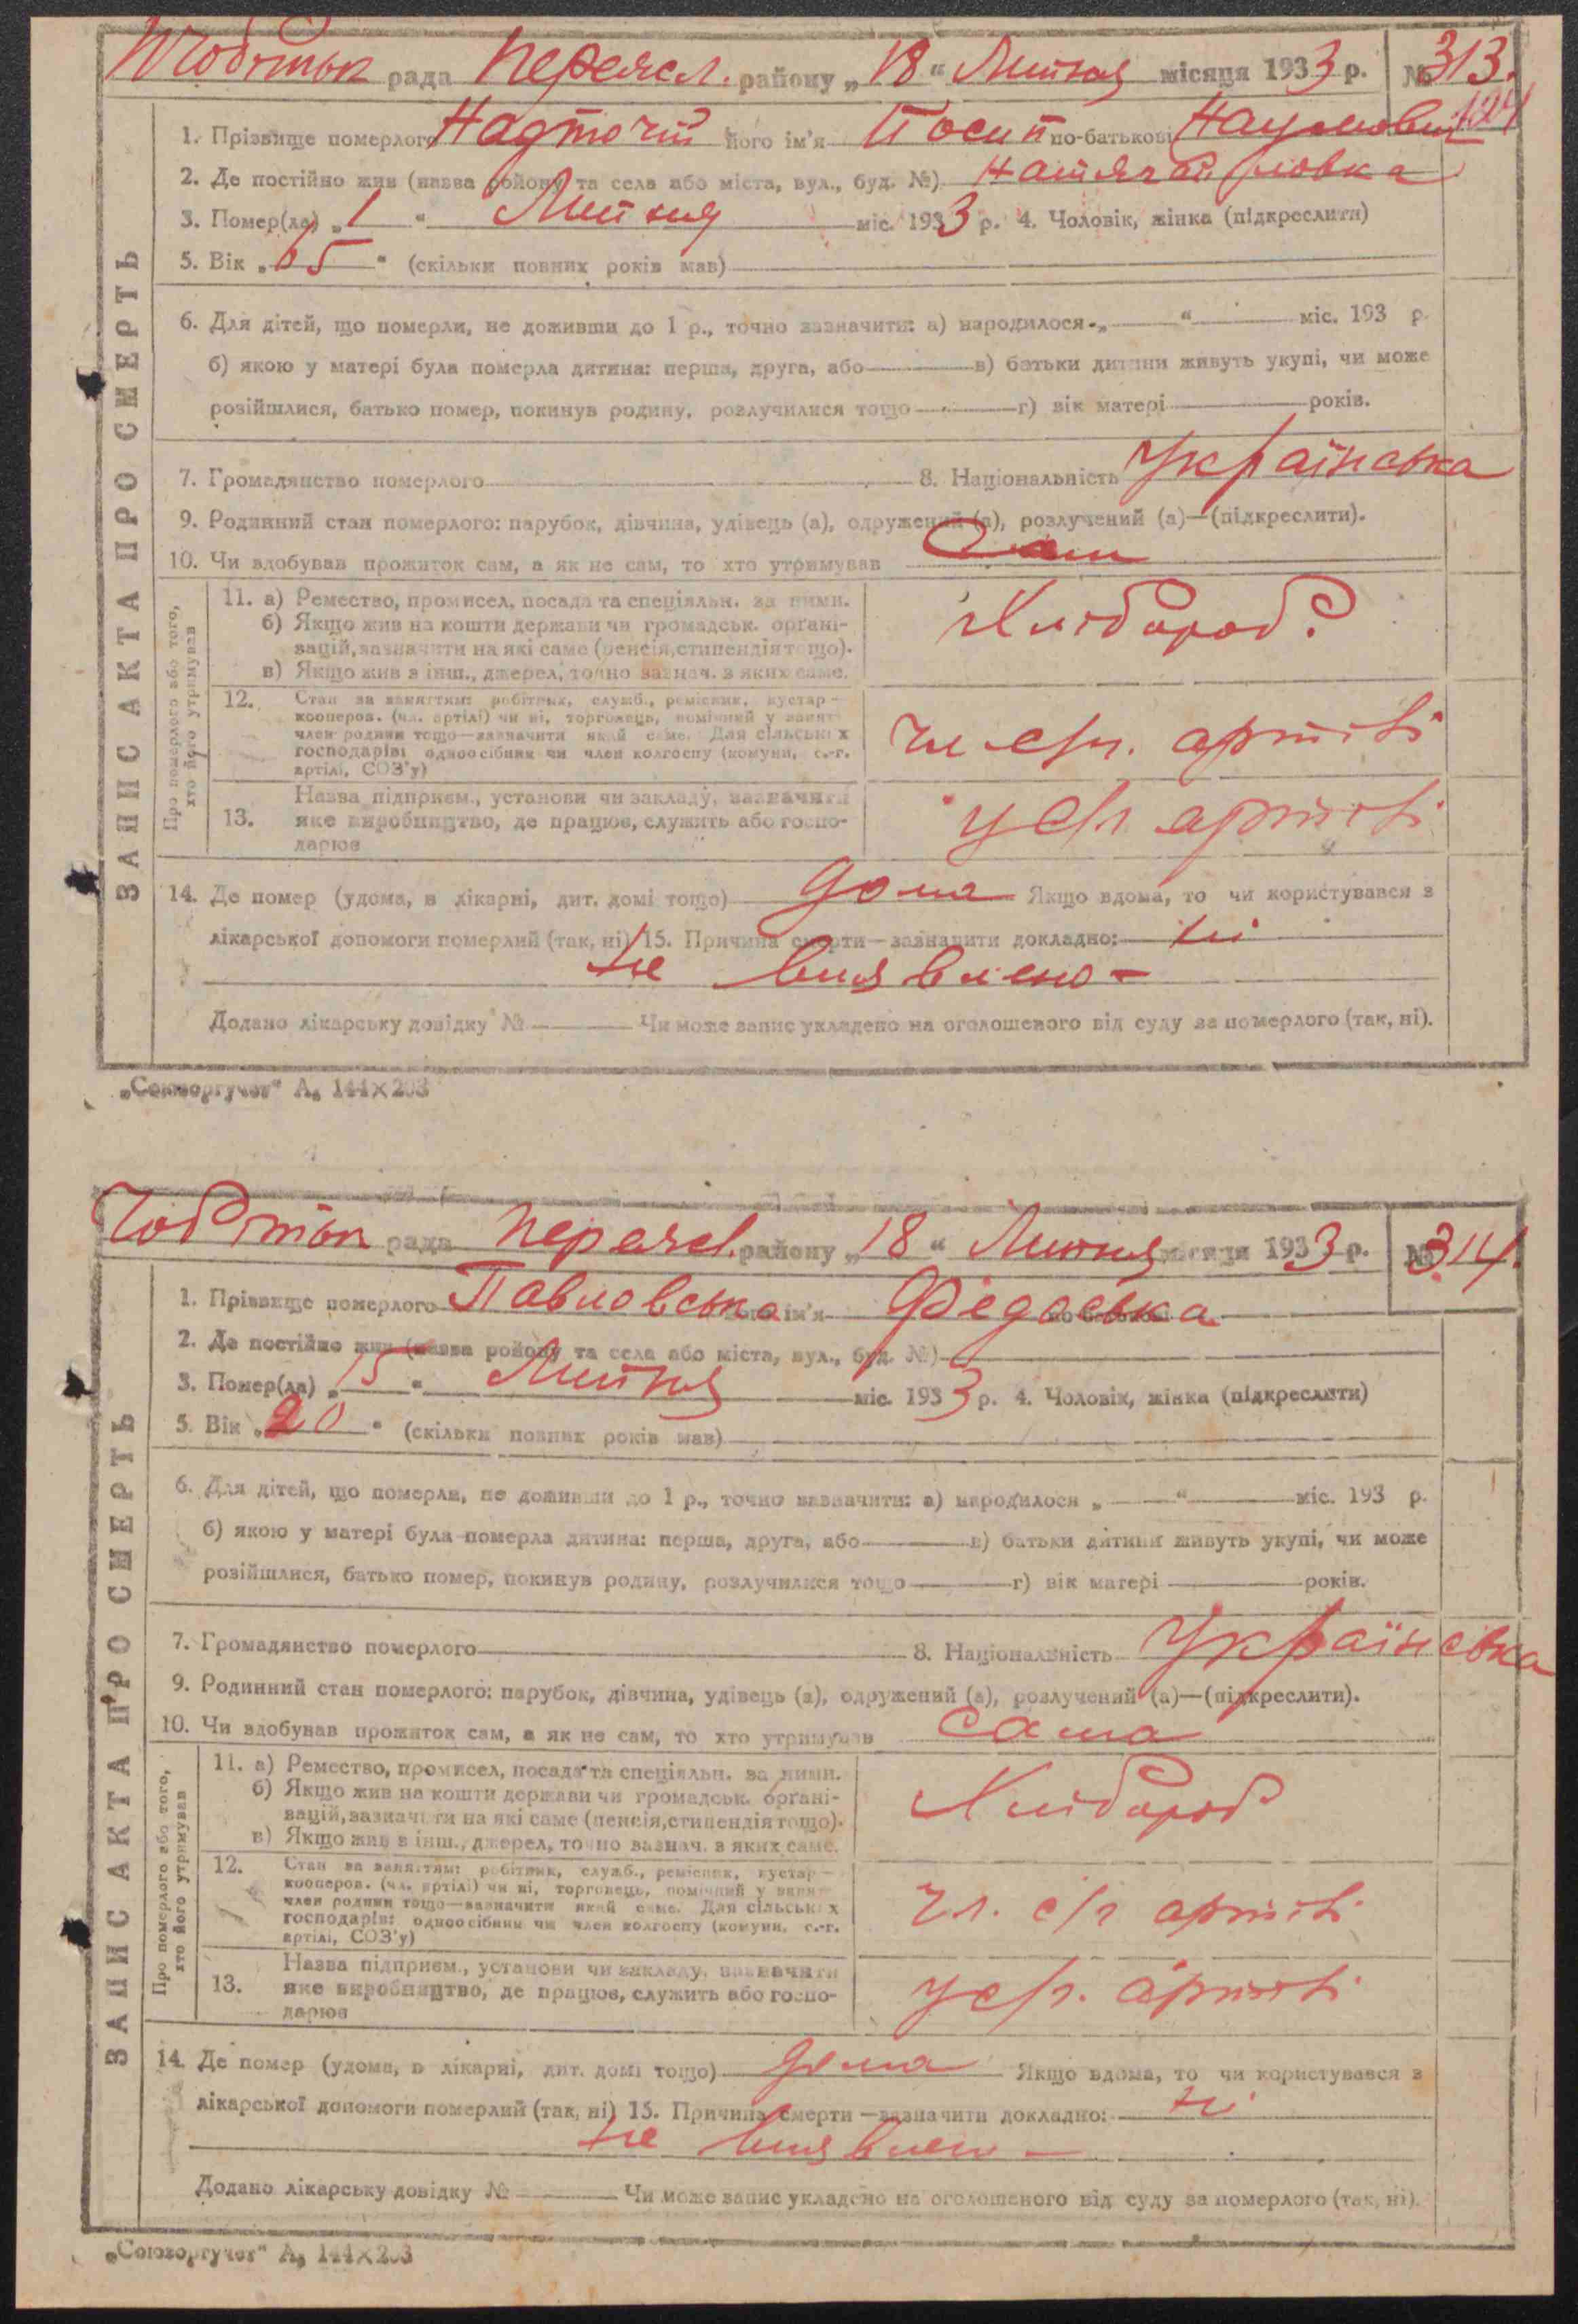 рада Переясл. району „18“ Липня місяця 1933 р. № 313.
124
1. Прізвище померлого Надточій його ім'я Йосип по-батькові Наумович
2. Де постійно жив (назва району та села або міста, вул., буд. №)
3. Помер(ла) „1“ Липня міс. 1933 р. 4. Чоловік, жінка (підкреслити)
5. Вік „65“ (скільки повних років мав)
6. Для дітей, що померли, не доживши до 1 р., точно зазначити: а) народилося „ “ міс. 193 р.
б) якою у матері була померла дитина: перша, друга, або в) батьки дитини живуть укупі, чи може
розійшлися, батько помер, покинув родину, розлучилися тощо г) вік матері років.
7. Громадянство померлого 8. Національність Українська
9. Родинний стан померлого: парубок, дівчина, удівець (а), одружений (а), розлучений (а)—(підкреслити).
10. Чи здобував прожиток сам, а як не сам, то хто утримував Сам
ЗАПИС АКТА ПРО СМЕРТЬ
Про померлого або того,
хто його утримував
11. а) Ремество, промисел, посада та спеціяльн. за ними.
б) Якщо жив на кошти держави чи громадськ. органі-
зацій, зазначити на які саме (пенсія, стипендія тощо).
в) Якщо жив з інш., джерел, точно зазнач. з яких саме.
Хлібороб.
12. Стан за заняттям: робітник, служб., ремісник, кустар—
кооперов. (чл. артілі) чи ні, торговець, помічний у занят.
член родини тощо—зазначити який саме. Для сільських
господарів: одноосібник чи член колгоспу (комуни, с.-г.
артілі, СОЗ'у)
чл с/г. артілі
13. Назва підприєм., установи чи закладу, зазначити
яке виробництво, де працює, служить або госпо-
дарює
у с/г артілі
14. Де помер (удома, в лікарні, дит. домі тощо) дома Якщо вдома, то чи користувався з
лікарської допомоги померлий (так, ні) 15. Причина смерти—зазначити докладно: ні
не виявлено —
Додано лікарську довідку № Чи може запис укладено на оголошеного від суду за померлого (так, ні).
„Союзоргучет“ А₅ 144×203
Чобітьк рада Переясл. району „18“ Липня місяця 1933 р. № 314.
1. Прізвище померлого Павловська його ім'я Федоська по-батькові
2. Де постійно жив (назва району та села або міста, вул., буд. №)
3. Помер(ла) „15“ Липня міс. 1933 р. 4. Чоловік, жінка (підкреслити)
5. Вік „20“ (скільки повних років мав)
6. Для дітей, що померли, не доживши до 1 р., точно зазначити: а) народилося „ “ міс. 193 р.
б) якою у матері була померла дитина: перша, друга, або в) батьки дитини живуть укупі, чи може
розійшлися, батько помер, покинув родину, розлучилися тощо г) вік матері років.
7. Громадянство померлого 8. Національність Українська
9. Родинний стан померлого: парубок, дівчина, удівець (а), одружений (а), розлучений (а)—(підкреслити).
10. Чи здобував прожиток сам, а як не сам, то хто утримував сама
ЗАПИС АКТА ПРО СМЕРТЬ
Про померлого або того,
хто його утримував
11. а) Ремество, промисел, посада та спеціяльн. за ними.
б) Якщо жив на кошти держави чи громадськ. органі-
зацій, зазначити на які саме (пенсія, стипендія тощо).
в) Якщо жив з інш., джерел, точно зазнач. з яких саме.
Хлібороб
12. Стан за заняттям: робітник, служб., ремісник, кустар—
кооперов. (чл. артілі) чи ні, торговець, помічний у занят.
член родини тощо—зазначити який саме. Для сільських
господарів: одноосібник чи член колгоспу (комуни, с.-г.
артілі, СОЗ'у)
чл. с/г артілі
13. Назва підприєм., установи чи закладу, зазначити
яке виробництво, де працює, служить або госпо-
дарює
у с/г. артілі
14. Де помер (удома, в лікарні, дит. домі тощо) дома Якщо вдома, то чи користувався з
лікарської допомоги померлий (так, ні) 15. Причина смерти—зазначити докладно: ні
не виявлен —
Додано лікарську довідку № Чи може запис укладено на оголошеного від суду за померлого (так, ні).
„Союзоргучет“ А₅ 144×203